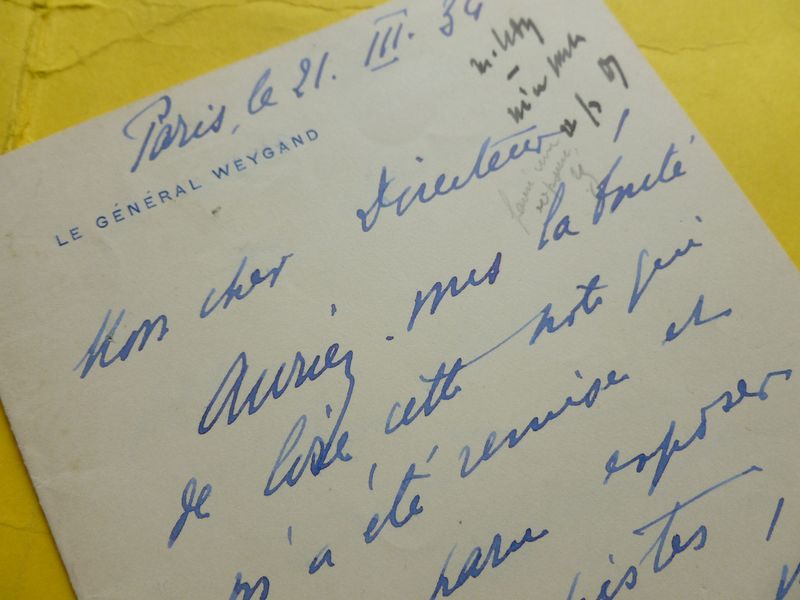 Paris, le 21. III. 34
LE GÉNÉRAL WEYGAND
Mon cher Directeur,
Auriez-vous la bonté
de lire cette note qui
m'a été remise et
parue exposer
istes,